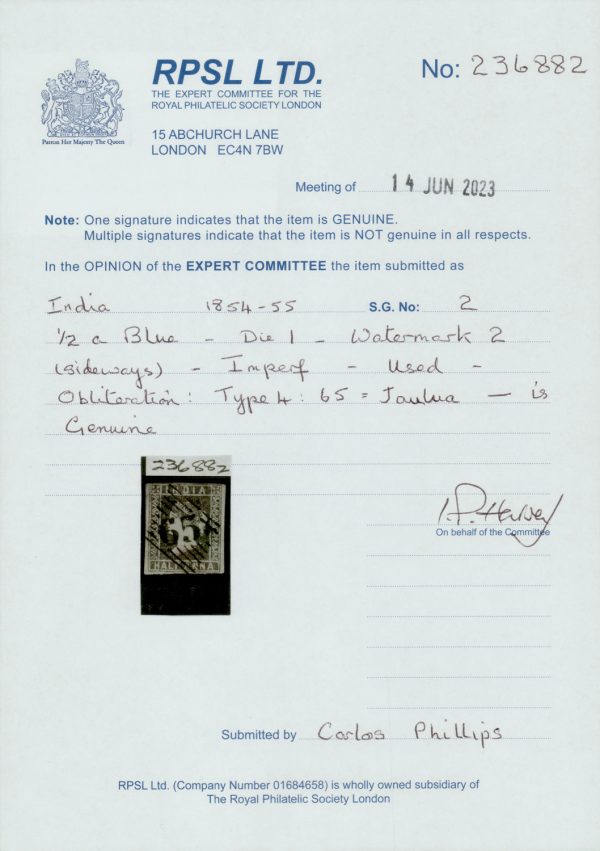 RPSL LTD.
THE EXPERT COMMITTEE FOR THE
ROYAL PHILATELIC SOCIETY LONDON
15 ABCHURCH LANE
LONDON EC4N 7BW
Patron Her Majesty The Queen
No: 236882
Meeting of 14 JUN 2023
Note: One signature indicates that the item is GENUINE.
Multiple signatures indicate that the item is NOT genuine in all respects.
In the OPINION of the EXPERT COMMITTEE the item submitted as
India 1854-55 S.G. No: 2
1/2 a Blue - Die 1 - Watermark 2
(sideways) - Imperf - Used -
Obliteration: Type 4: 65 = Jaulna — is
Genuine
236882
INDIA
65
HALF ANNA
On behalf of the Committee
Submitted by Carlos Phillips
RPSL Ltd. (Company Number 01684658) is wholly owned subsidiary of
The Royal Philatelic Society London